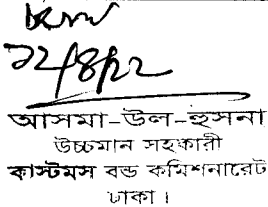 ২২/৪/২২
আসমা-উল-হুসনা
উচ্চমান সহকারী
কাস্টমস বন্ড কমিশনারেট
ঢাকা।